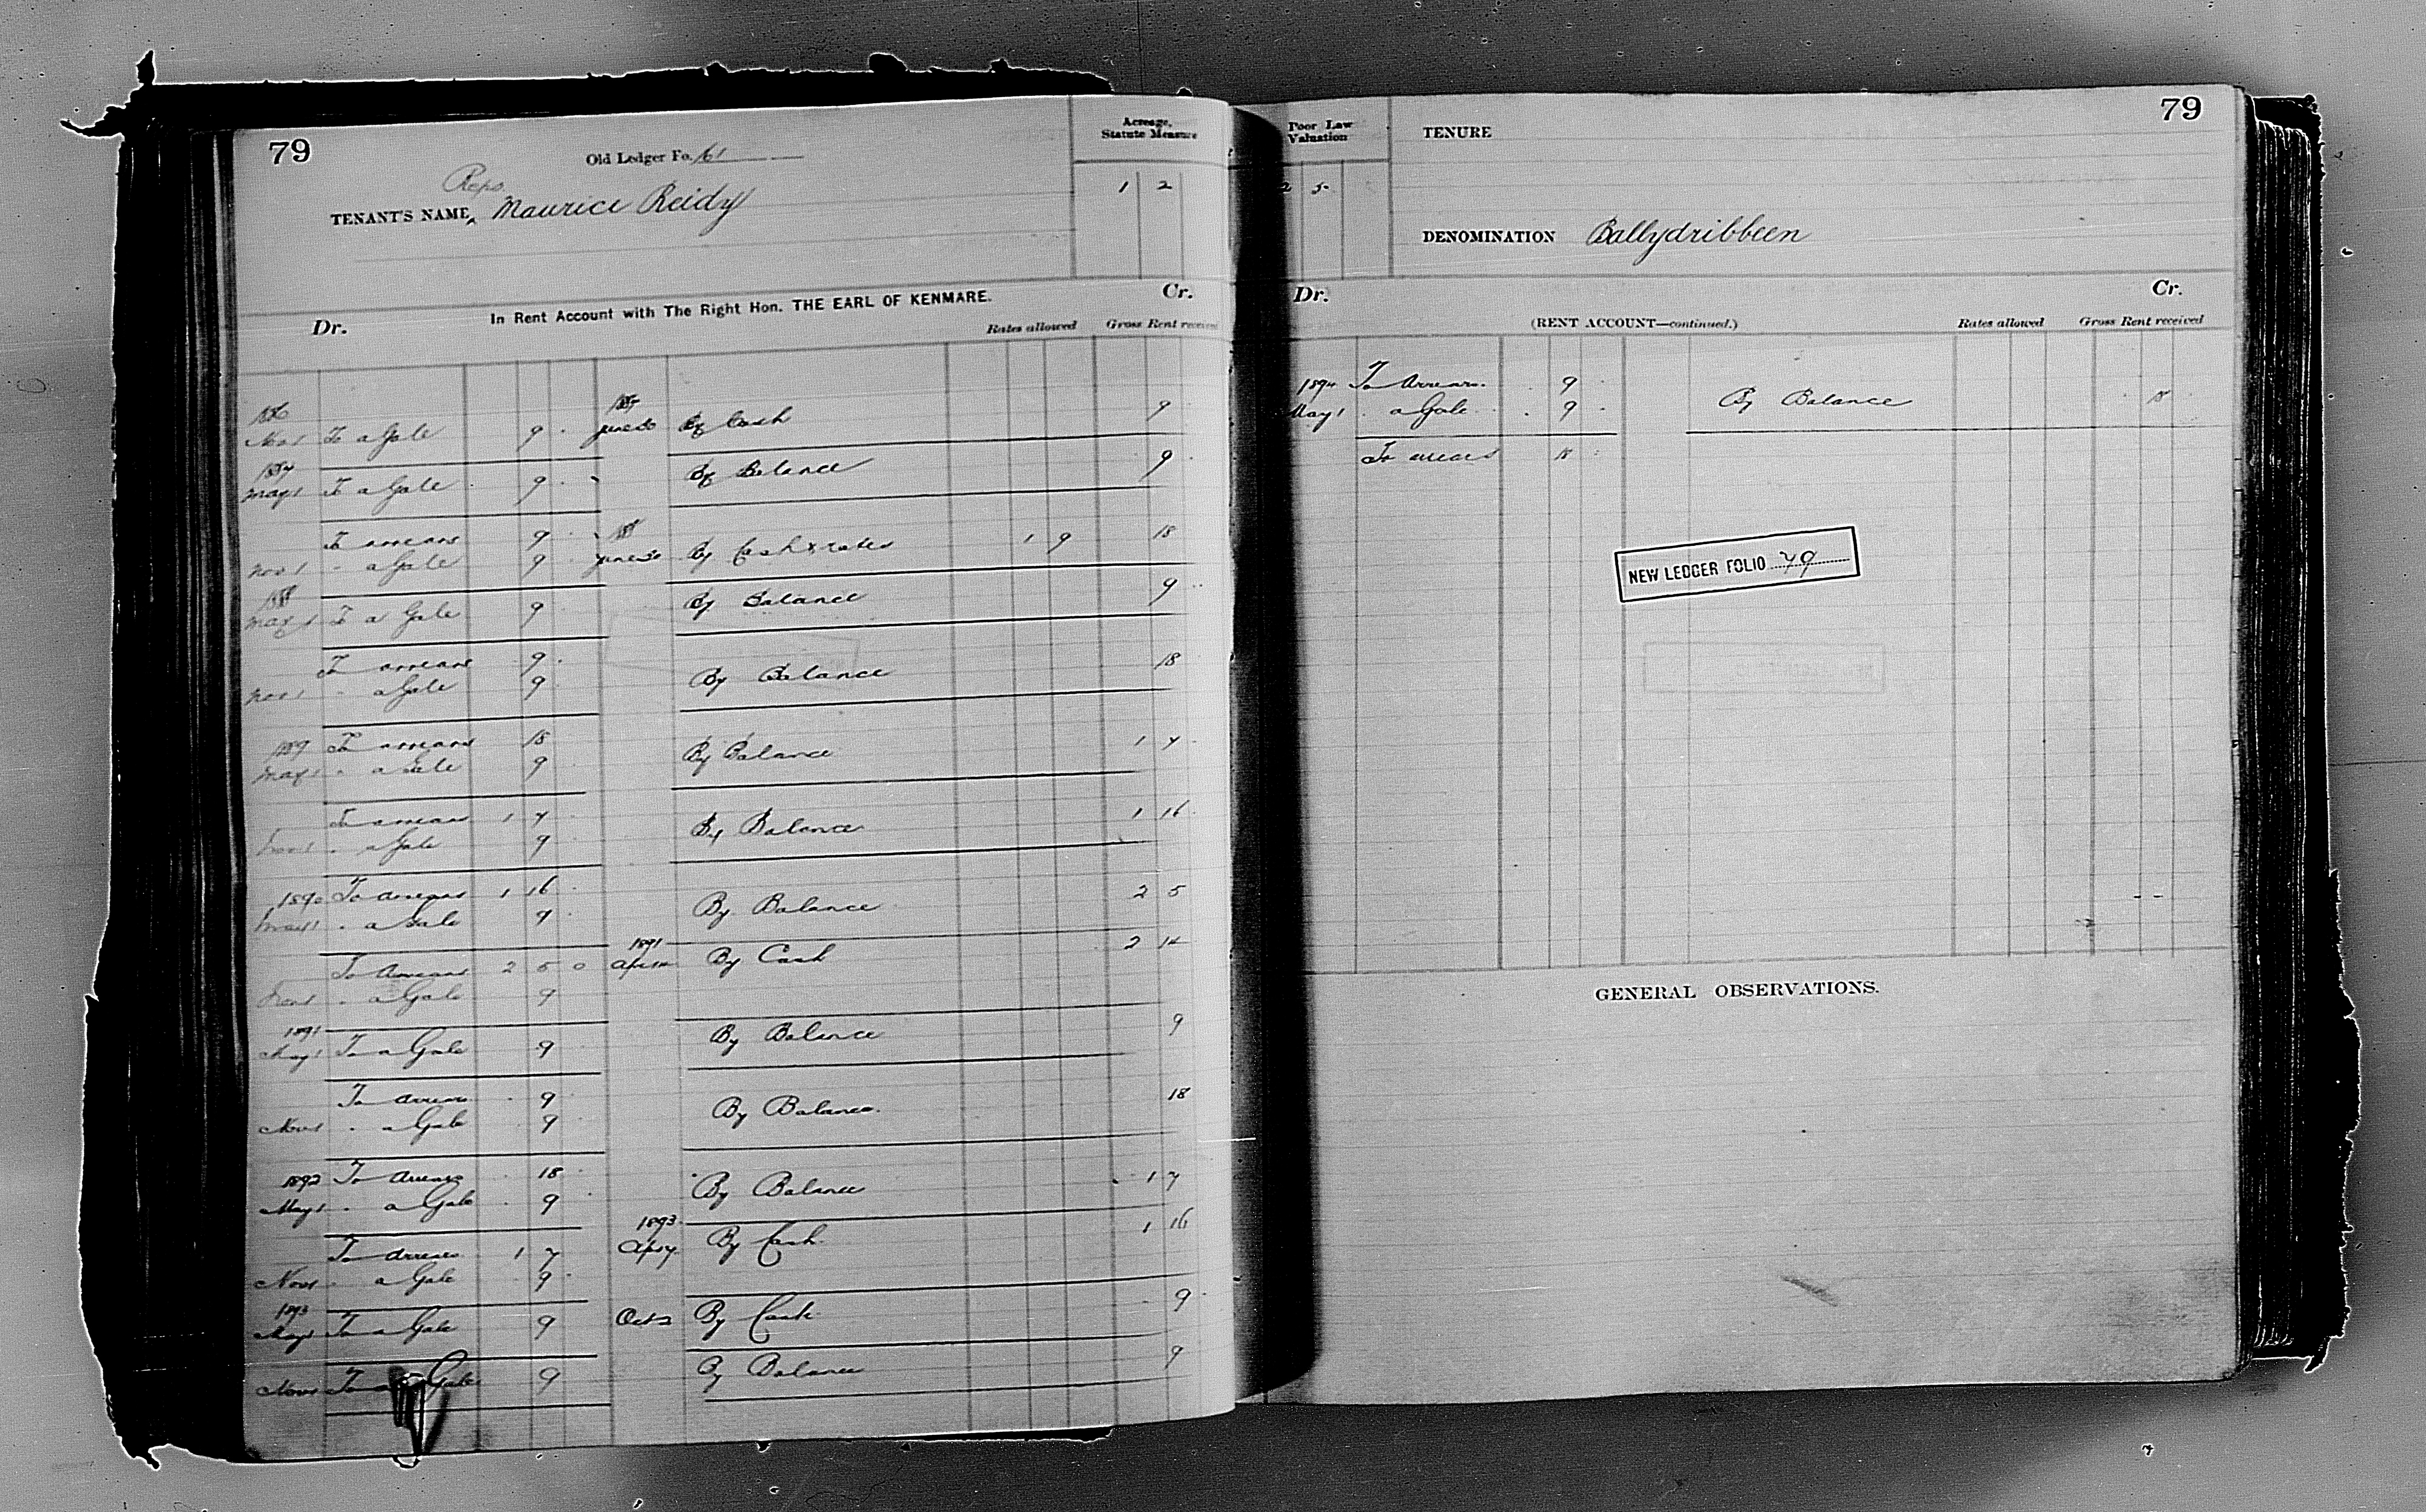 79
Old Ledger Fo. 61
Acreage,
Statute Measure
Reps
TENANT'S NAME, Maurice Reidy
1 2
In Rent Account with The Right Hon. THE EARL OF KENMARE.
Dr. Cr.
Rates allowed Gross Rent received
1886 1887
Nov 1 To a Gale 9 June 30 By Cash 9
1887
May 1 To a Gale 9 By Balance 9
To arrears 9 1888
Nov 1 " a Gale 9 June 30 By Cash & rates 1 9 18
1888
May 1 To a Gale 9 By Balance 9
To arrears 9
Nov 1 " a Gale 9 By Balance 18
1889 To arrears 18
May 1 " a Gale 9 By Balance 1 7
To arrears 1 7
Nov 1 " a Gale 9 By Balance 1 16
1890 To arrears 1 16
May 1 " a Gale 9 By Balance 2 5
To Arrears 2 5 0 1891 By Cash 2 14
Nov 1 " a Gale 9
1891
May 1 To a Gale 9 By Balance 9
To arrears 9
Nov 1 " a Gale 9 By Balance 18
1892 To Arrears 18
May 1 " a Gale 9 By Balance 1 7
To Arrears 1 7 1893 By Cash 1 16
Nov 1 " a Gale 9
1893
May 1 To a Gale 9 Oct 2 By Cash 9
Nov 1 To a Gale 9 By Balance 9
79
Poor Law
Valuation
TENURE
2 5
DENOMINATION Ballydribbeen
Dr. Cr.
(RENT ACCOUNT—continued.) Rates allowed Gross Rent received
1894 To Arrears 9
May 1 " a Gale 9 By Balance 18
To arrears 18
NEW LEDGER FOLIO 79
GENERAL OBSERVATIONS.